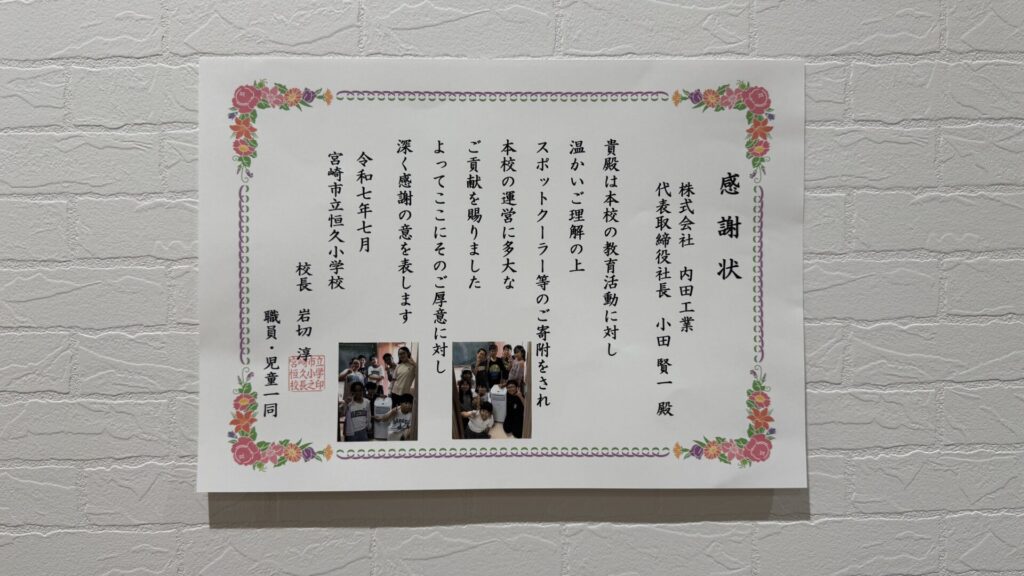 感謝状
株式会社 内田工業
代表取締役社長 小田 賢一 殿
貴殿は本校の教育活動に対し
温かいご理解の上
スポットクーラー等のご寄附をされ
本校の運営に多大な
ご貢献を賜りました
よってここにそのご厚意に対し
深く感謝の意を表します
令和七年七月
宮崎市立恒久小学校
校長 岩切 淳
職員・児童一同
宮崎市立
恒久小学
校長之印